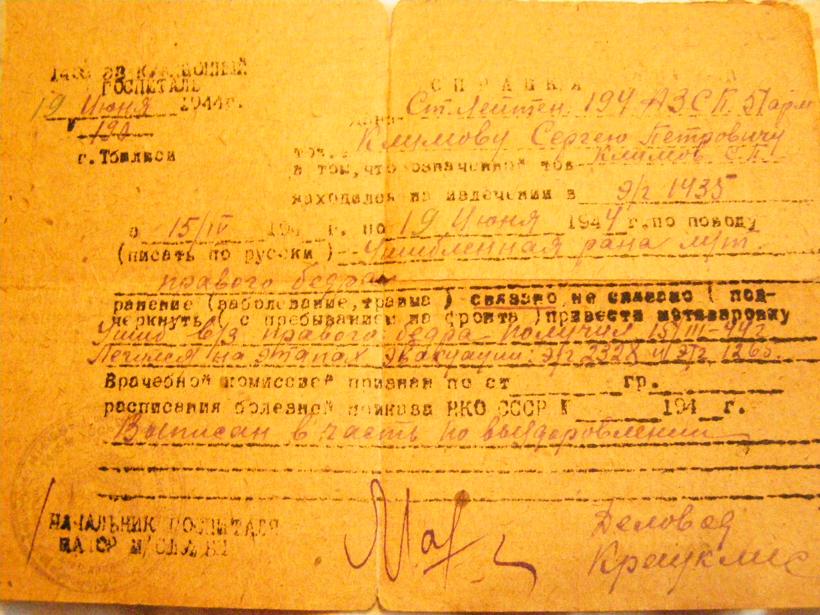 1435 ЭВАКУАЦИОННЫЙ
ГОСПИТАЛЬ
19 Июня 1944г.
г.Тбилиси
СПРАВКА
Дана Ст. Лейтен. 194 АЗСП. 51 арм
тов. Климову Сергею Петровичу
в том, что означенный тов Климов С.П.
находился на излечении в э/г 1435
с 15/IV 194 г. по 19 Июня 1944г., по поводу
(писать по русски) Ушибленная рана
правого бедра
ранение (заболевание, травма) связано, не связано (под-
черкнуть) с пребыванием на фронте) привести мотивировку
Ушиб в/з правого бедра получил 15/III-44г
Лечился на этапах эвакуации: э/г 2328 и э/г 1265.
Врачебной комиссией признан по ст ____ гр. ____
расписания болезней приказа НКО СССР № ____ 194_ г.
Выписан в часть по выздоровлении
НАЧАЛЬНИК ГОСПИТАЛЯ
МАЙОР М/СЛУЖБЫ
Деловод
Крауклис